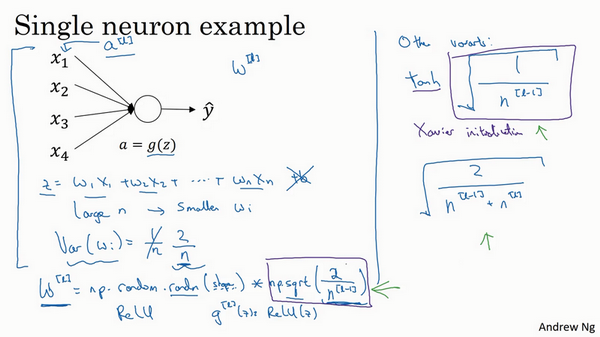 Single neuron example
a^[l]
x₁
x₂
x₃
x₄
ŷ
a = g(z)
w^[l]
z = w₁x₁ + w₂x₂ + ... + wₙxₙ
Large n → Smaller wᵢ
Var(wᵢ) = 1/n 2/n
w^[l] = np.random.randn(shape) * np.sqrt(2/n^[l-1])
ReLU g^[l](z) = ReLU(z)
Other variants:
tanh √(1/n^[l-1])
Xavier initialization
√(2/(n^[l-1] + n^[l]))
Andrew Ng